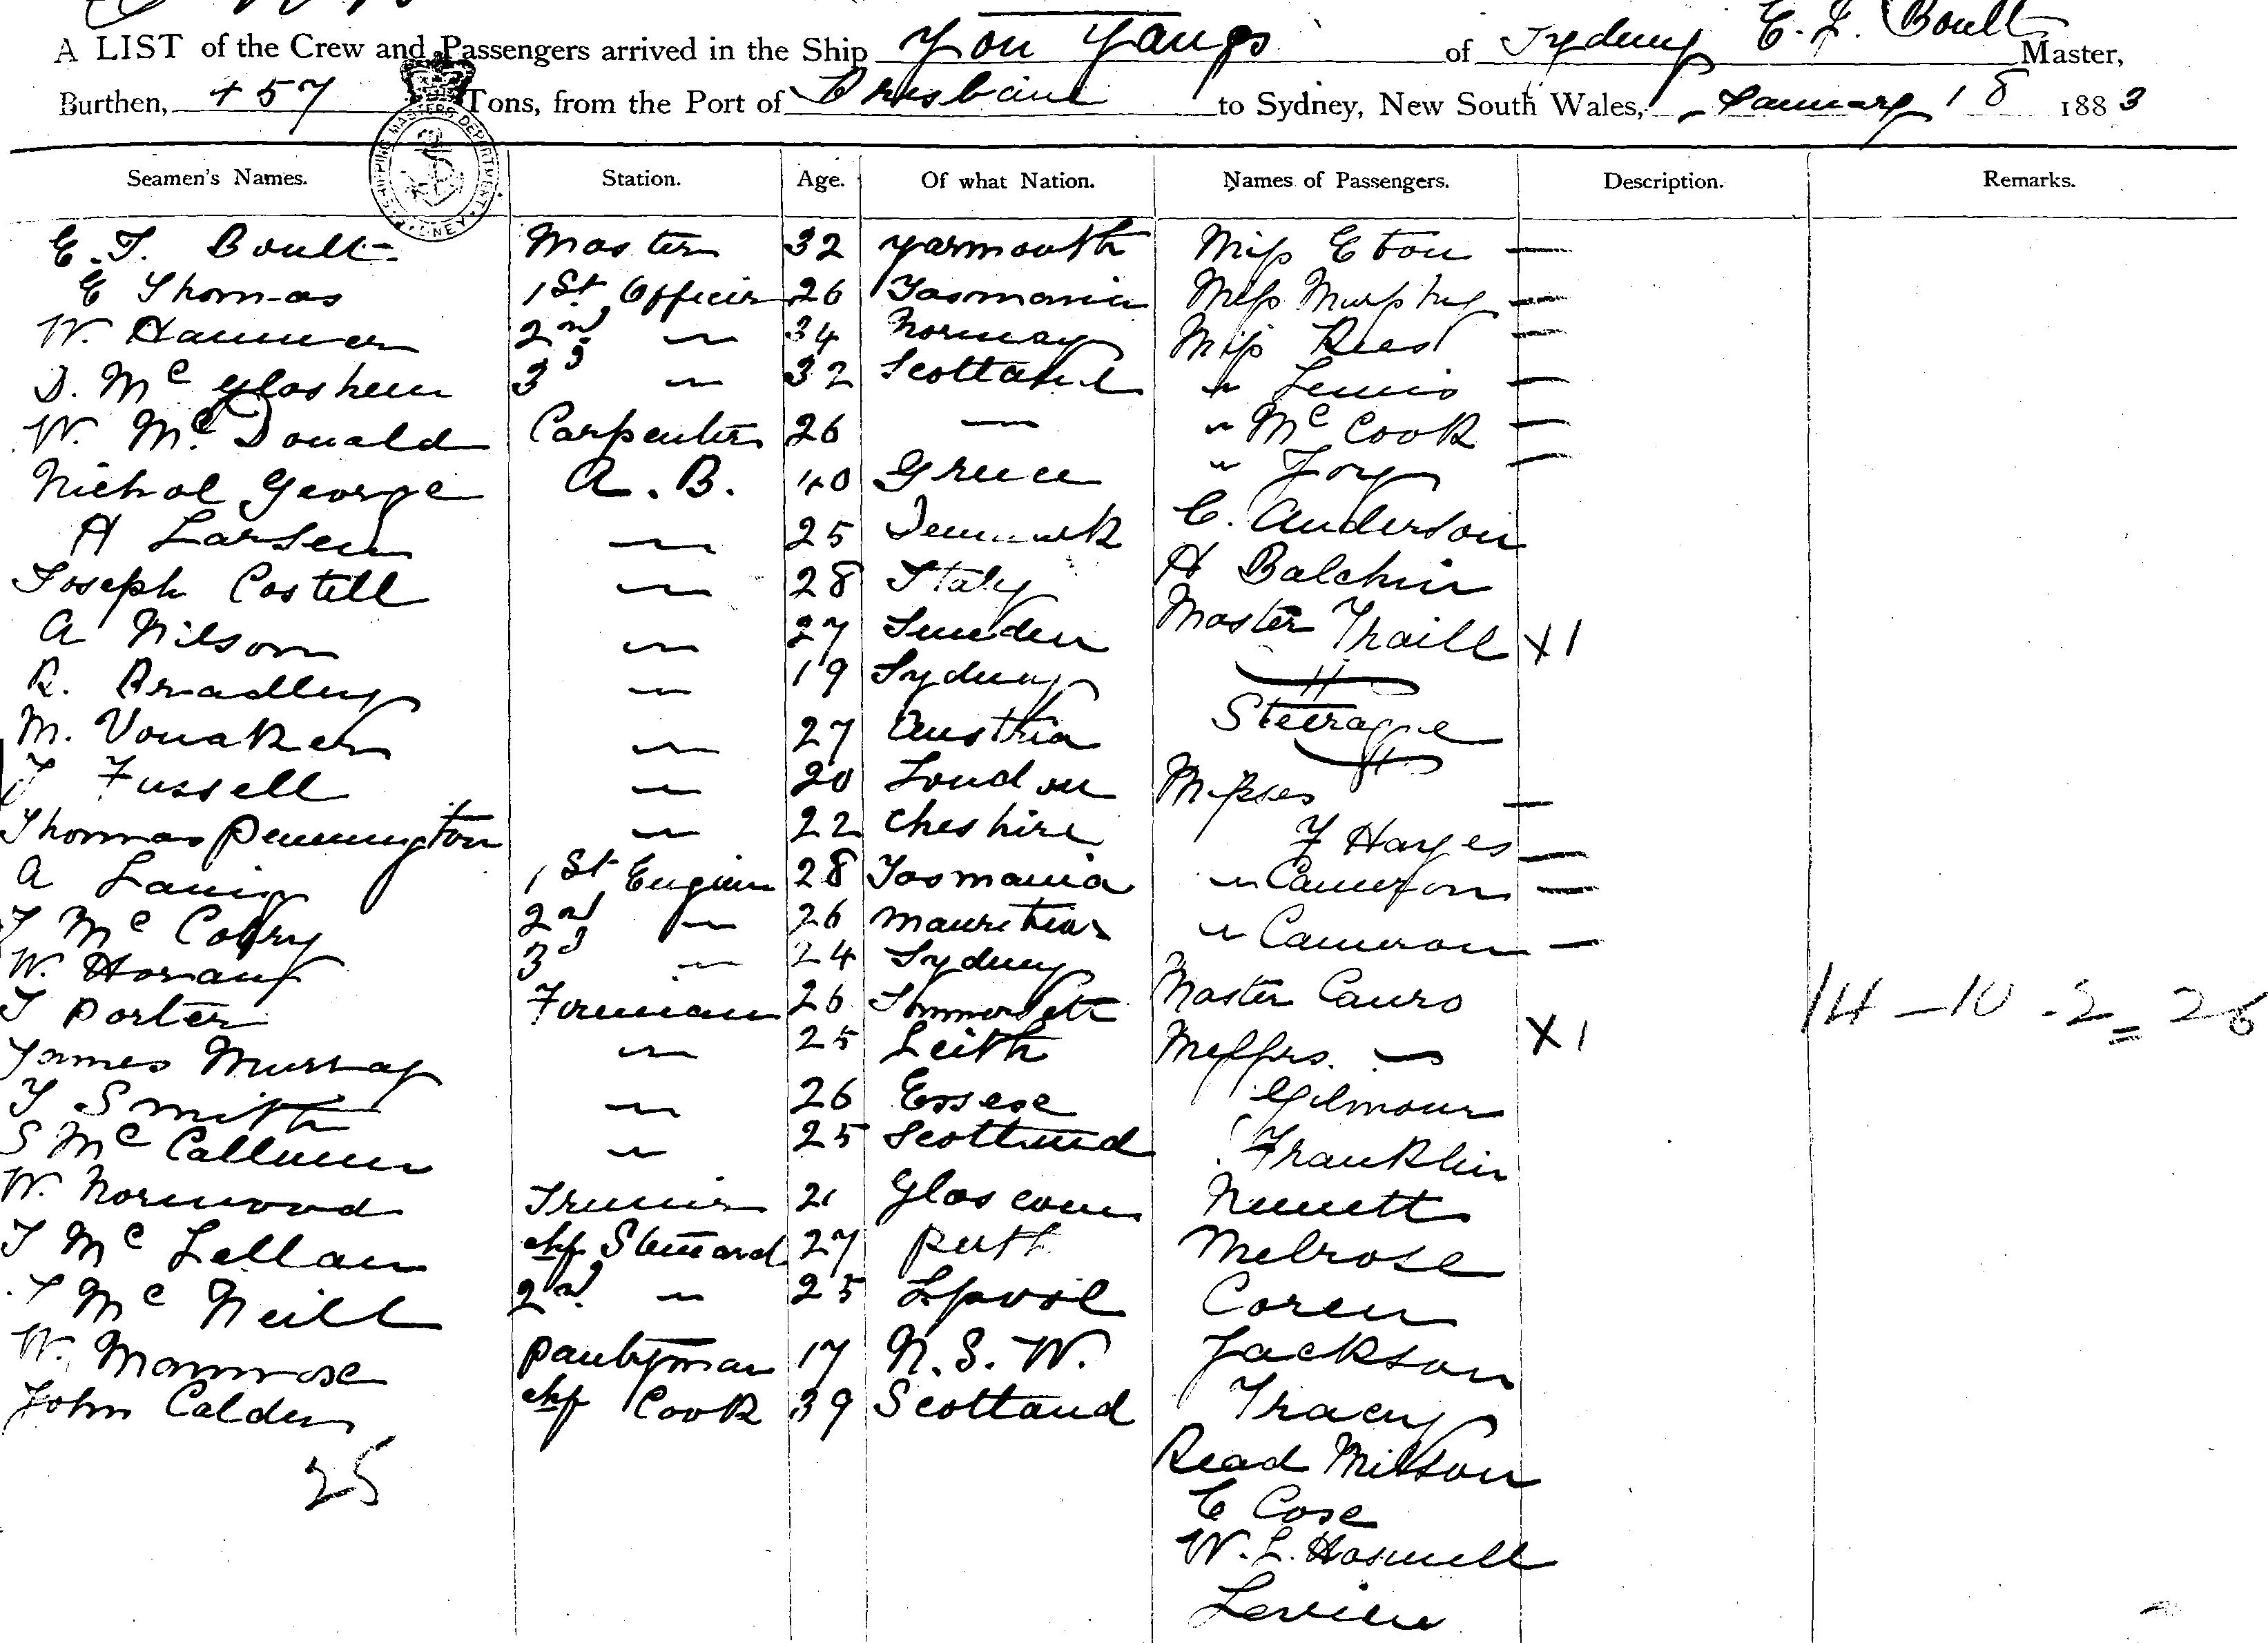 A LIST of the Crew and Passengers arrived in the Ship You Yangs of Sydney E. T. Boult Master,
Burthen, 457 Tons, from the Port of Brisbane to Sydney, New South Wales, January 18 1883
SHIPPING MASTERS DEPARTMENT SYDNEY
Seamen's Names. Station. Age. Of what Nation. Names of Passengers. Description. Remarks.
E. T. Boult Master 32 Yarmouth Miss Eton —
E Thomas 1st Officer 26 Tasmania Miss Murphy —
W. Hammer 2nd " 34 Norway Miss Rees —
D. McGlashen 3d " 32 Scotland " Lewis —
W. McDonald Carpenter 26 — " McCook —
Nichol George A. B. 40 Greece " Joy —
A Larsen " 25 Denmark C. Anderson
Joseph Costell " 28 Italy A Balchin
A Nilson " 27 Sweden Master Thaill X1
R. Bradley " 19 Sydney
M. Vonaker " 27 Austria Steerage
J Fussell " 20 London Misses —
Thomas Pennington " 22 Cheshire F Hayes —
A Laing 1st Engineer 28 Tasmania " Cameron —
J McCobry 2nd " 26 Mauritius " Cameron —
W. Horan 3d " 24 Sydney
J Porter Fireman 26 Sommersett Master Cauro
James Murray " 25 Leith Messrs. — X1 14 - 10 - 2 = 26
J Smith " 26 Essex Gilmour
S McCallum " 25 Scotland Franklin
W. Norwood Trimmer 21 Glascow
J McLellan chf Steward 27 Perth Melrose
J McNeill 2nd " 25 Lpool Coren
W. Manrose Pantryman 17 N. S. W. Jackson
John Calder chf Cook 39 Scotland Tracey
25 Read Mitson
C Cose
W. L. Haswell
Levien